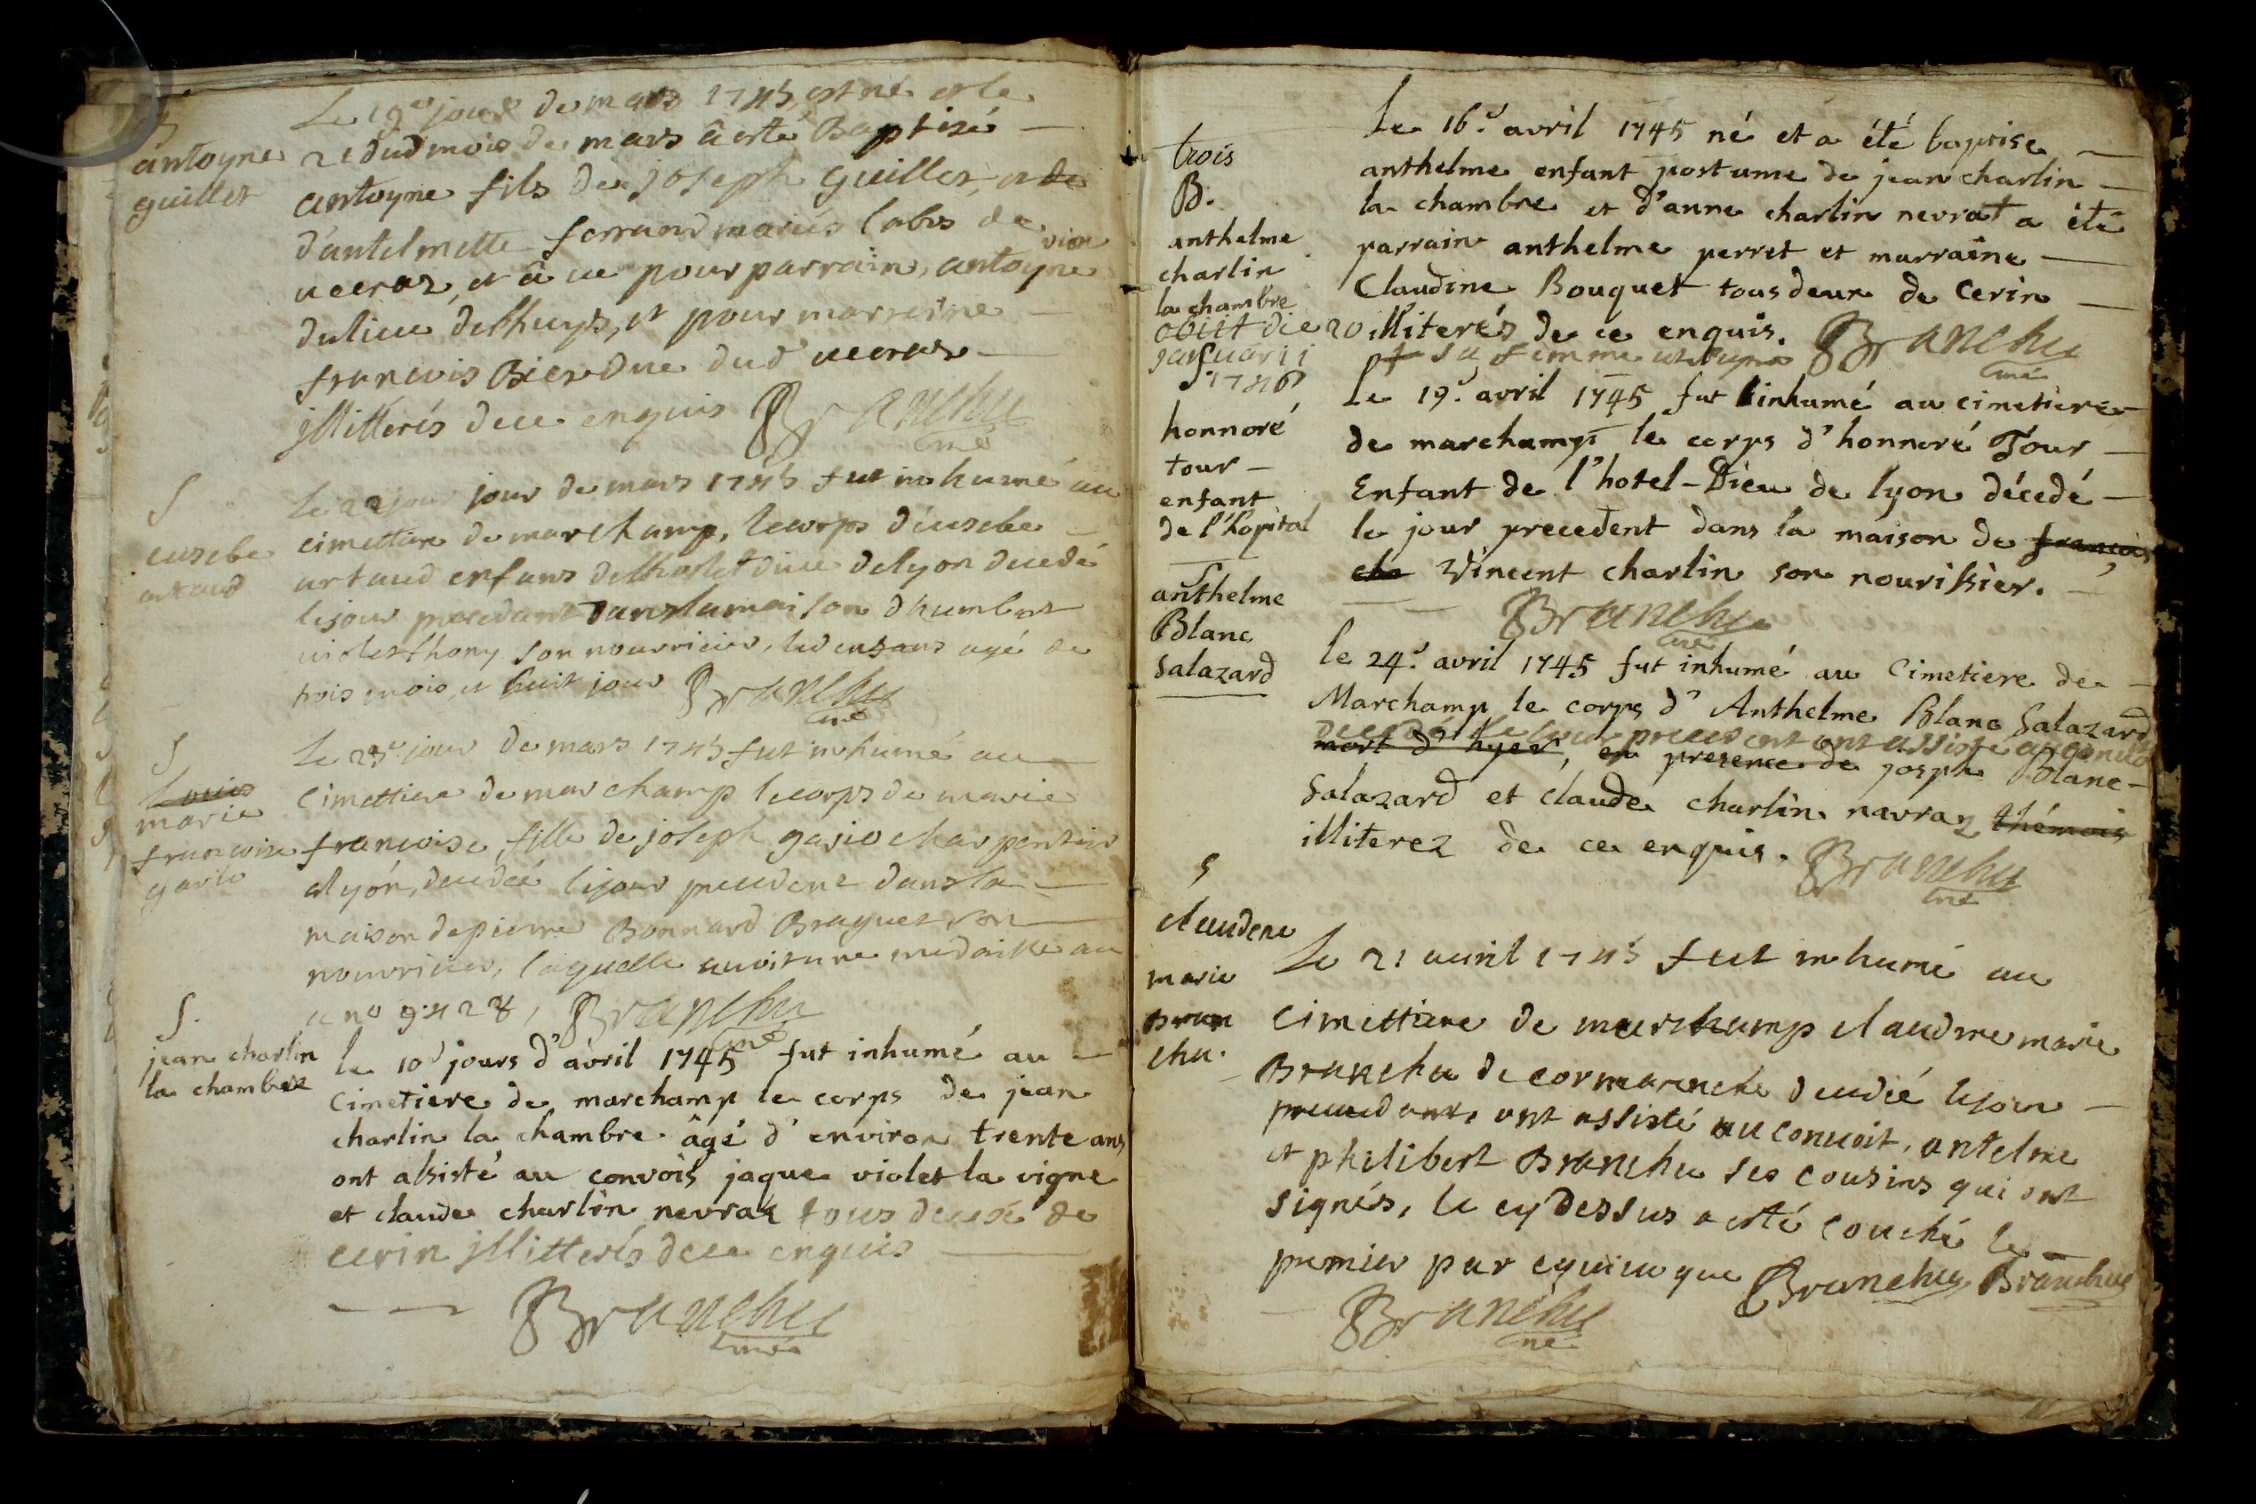 B
antoyne
guillet
Le 19e jour de mars 1745 est né et le
21 dud mois de mars à esté Baptizé
antoyne fils de joseph guillet, et de
d'antelmette ferrand mariés labs de
vecraz, et à ue pour parrain, antoyne
du lieu delhuys, et pour marreine
francois Bier due dud vecraz
jllitterés de ce enquis Branchu
curé
S
eusebe
artaud
Le 22 jour jour de mars 1745 fut inhumé au
cimettiere de marchamp, le corps d'eusebe
artaud enfans de lhostel dieu de lyon decedé
le jour precedant dans la maison d'humbert
violet thony son nourricier, led enfans agé de
trois mois, et huit jour Branchu
curé
S
Louis
marie
francoise
gario
Le 25e jour de mars 1745 fut inhumé au
Cimettiere de marchamp le corps de marie
francoise, fille de joseph gario charpentier
a lyon, decedée le jour precedent dans la
maison de pierre Bonnard Braguet son
nourricier, laquelle
a no 9428, Branchu
curé
S.
jean charlin
la chambre
le 10e jours d'avril 1745 fut inhumé au
Cimetiere de marchamp le corps de jean
charlin la chambre âgé d'environ trente ans
ont assisté au convois jaque violet la vigne
et claude charlin nevraz tous deux de
cerin jllitterés de ce enquis
Branchu
curé
trois
B.
anthelme
charlin
la chambre
obiit die 20
januarii
1746
Le 16e avril 1745 né et a été baptise
anthelme enfant postume de jean charlin
la chambre et d'anne charlin nevrat a été
parrain anthelme perret et marraine
Claudine Bouquet tous deux de Cerin
illiterés de ce enquis. Branchu
curé
S
honnoré
tour
enfant
de l'hopital
Le 19e avril 1745 fut inhumé au cimetiere
de marchamp le corps d'honnoré Tour
Enfant de l'hotel-Dieu de lyon décedé
le jour precedent dans la maison de françois
cha Vincent charlin son nourissier.
Branchu
curé
S
anthelme
Blanc
Salazard
le 24e avril 1745 fut inhumé au Cimetiere de
Marchamp le corps d'Anthelme Blanc Salazard
decedé le jour precedent ont assisté
mort d'hyer, en presence de josph Blanc
Salazard et claude charlin navraz thémois
illiterez de ce enquis. Branchu
curé
S
claudene
marie
Bran
chu.
Le 21 avril 1745 fut inhumé au
Cimettiere de marchamp claudine marie
Branchu de cormaranche decedée le jour
precedant, ont assisté au convoit, antelme
et philibert Branchu ses cousins qui ont
signés, le cy dessus a esté couché le
premier par equivoque Branchu Branchu
Branchu
curé